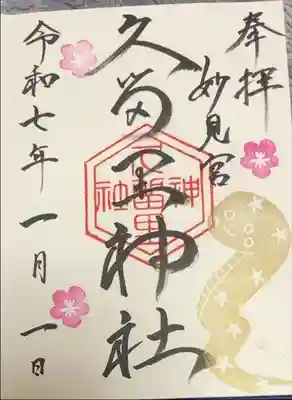 奉拝
妙見宮
久留里神社
神
社
令和七年一月一日